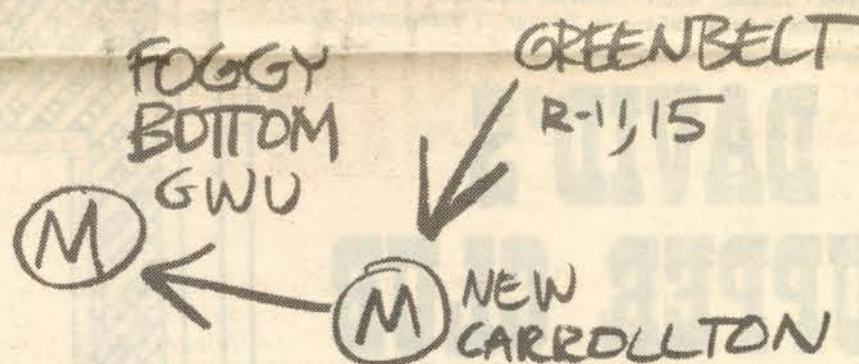 FOGGY
BOTTOM
GWU
M
GREENBELT
R-11, 15
M
NEW
CARROLLTON